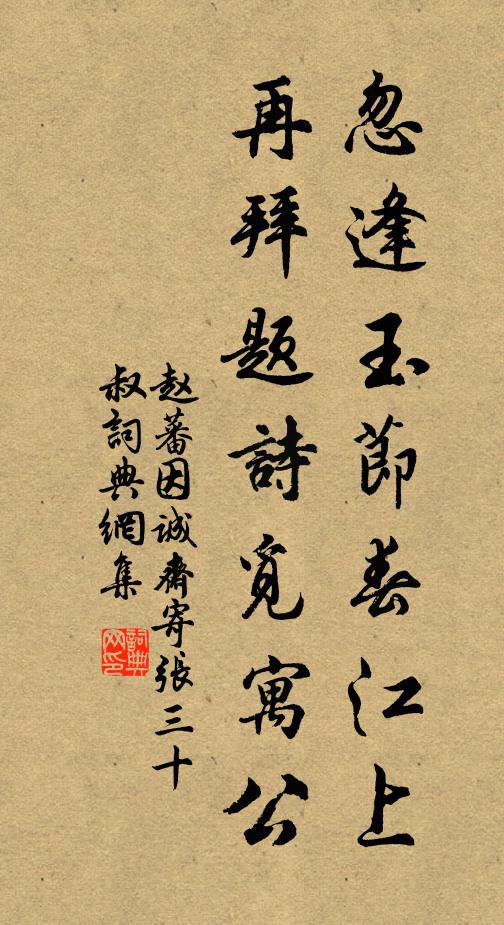 忽逢玉節春江上
再拜題詩覓寓公
赵蕃因诚斋寄張三十
叔詞典網集
詞典网印